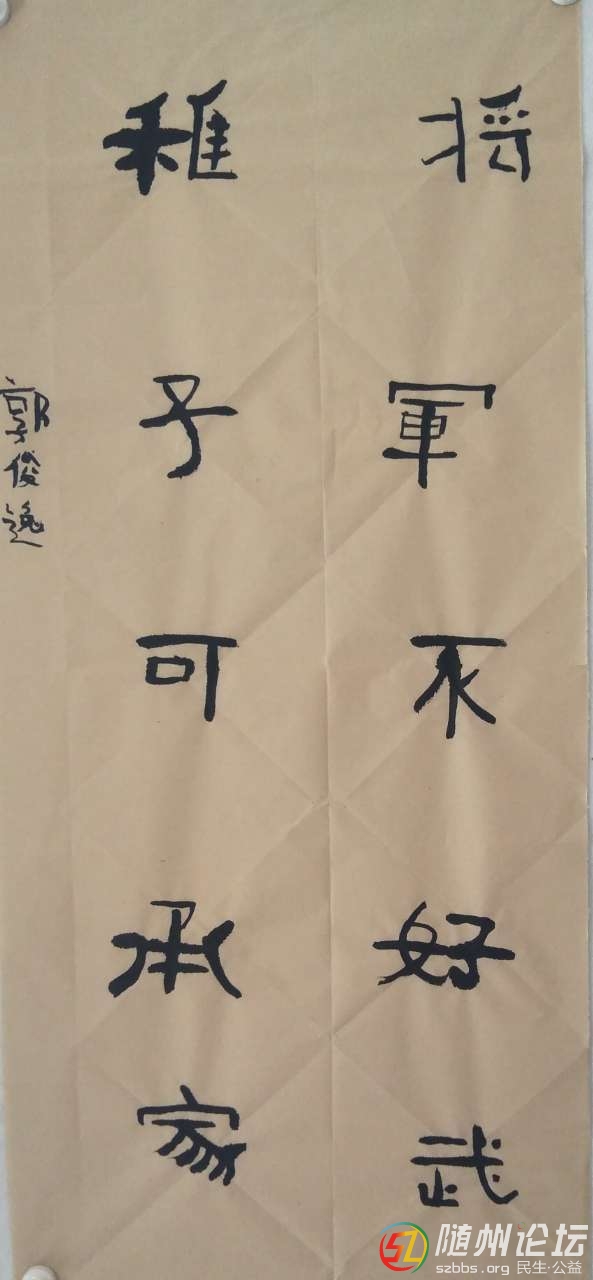 将軍不好武
稚子可承家
郭俊逸
随州论坛
szbbs.org 民生·公益